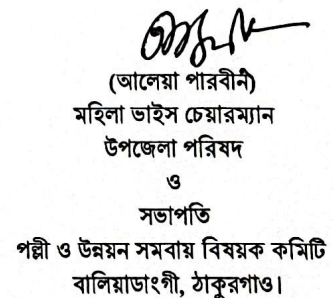 (আলেয়া পারবীন)
মহিলা ভাইস চেয়ারম্যান
উপজেলা পরিষদ
ও
সভাপতি
পল্লী ও উন্নয়ন সমবায় বিষয়ক কমিটি
বালিয়াডাংগী, ঠাকুরগাও।